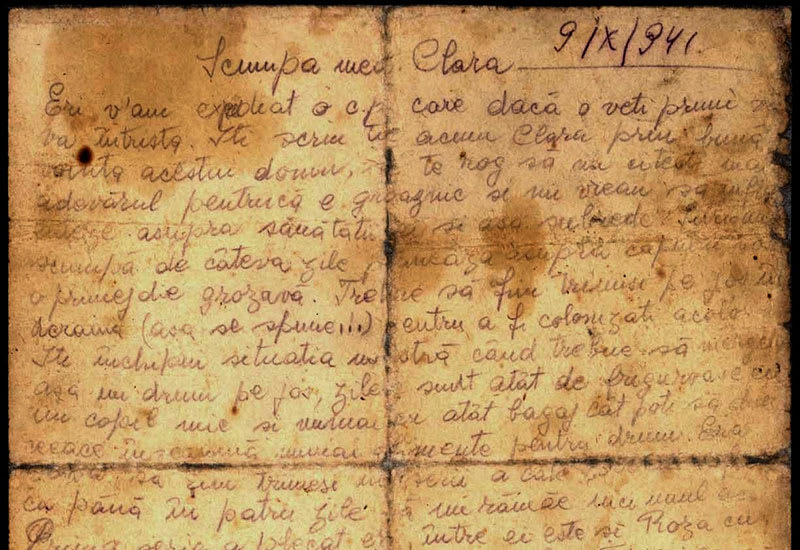 9/X/941.
Scumpa mea Clara
Eri v'am expediat o c.p. care dacă o veti primi
va întrista. Iti scriu acum Clara prin bună
vointa acestui domn, te rog să nu citesti
adevărul pentrucă e groaznic si nu vreau să
asupra sănătătii si asa subrede.
scumpă de câteva zile asupra capului
o primejdie grozavă. Trebue să fim trimisi pe jos
(asa se spune!!!) pentru a fi colonizati acolo.
Iti închipui situatia noastră când trebue să mergem
asa un drum pe jos, zilele sunt atât de friguroase cu
un copil mic si numai atât bagaj cât poti să duci
ceeace înseamnă numai alimente pentru drum. Era
să fim trimesi în serii a câte
ca până în patru zile să nu rămâe nici unul
Prima serie a plecat eri, între ei este si Roza cu